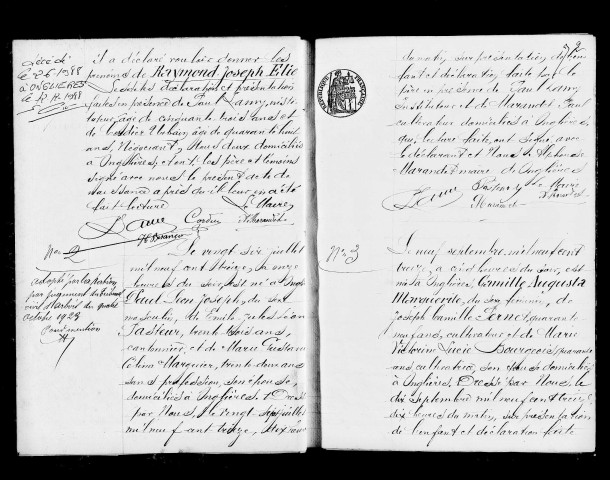 décédé
le 7-6-1988
à ONGLIERES
le
il a déclaré vouloir donner les
prénoms de Raymond Joseph Elie
Lesdites déclaration et présentation
faites en présence de Paul Lamy, insti
tuteur, âgé de cinquante trois ans et
de Cordier Urbain, âgé de quarante huit
ans, négociant, tous deux domiciliés
à Onglières, et ont les père et témoins
signé avec nous le présent acte de
naissance après qu'il leur en a été
fait lecture
Le Maire
Lamy Cordier
No 2
adopté par la Nation
par jugement du Tribunal
civil d'Arbois du quatre
octobre 1923
Pour mention
Le vingt six juillet
mil neuf cent treize, à onze
heures du soir, est né à Onglières
Paul Léon Joseph, du sexe
masculin, de Emile
Pasteur, trente ans,
cantonnier, et de Marie
Célina Marguier, trente deux ans
sans profession, son épouse,
domiciliés à Onglières. Dressé
par Nous, le vingt sept juillet
mil neuf cent treize, à dix heures
2
du matin, sur présentation de l'en
fant et déclaration faite par le
père en présence de Paul Lamy
Instituteur et de Marandet Paul
cultivateur domiciliés à Onglières,
qui, lecture faite, ont signé avec
le déclarant et Nous Alphonse
Marandet maire de Onglières
Lamy Pasteur Le Maire
Marandet
REPUBLIQUE FRANÇAISE
No 3
Le neuf septembre mil neuf cent
treize, à cinq heures du soir, est
née à Onglières, Camille Augusta
Marguerite, du sexe féminin, de
Joseph Camille Cornet, quarante
neuf ans, cultivateur, et de Marie
Victorine Lucie Bourgeois quarante
ans, cultivatrice, son épouse domiciliés
à Onglières. Dressé par Nous, le
dix septembre mil neuf cent treize
dix heures du matin, sur présentation
de l'enfant et déclaration faite